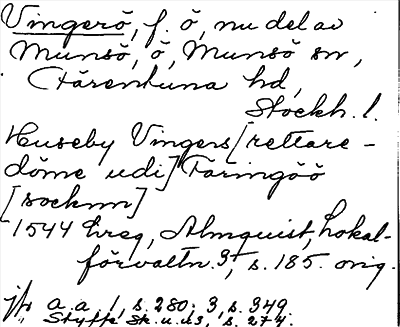 Vingerö, f. ö, nu del av
Munsö, ö, Munsö sn,
Färentuna hd,
Stockh. l.
Huseby Vingers [rettare-
döme udi] Faringöö
[socknn]
1544 Greg, Almquist, Lokal-
förvaltn. 3, s. 185. orig.
jfr a.a. 1, s. 280. 3, s. 349.
Styffe Sk. u. u3, s. 274.